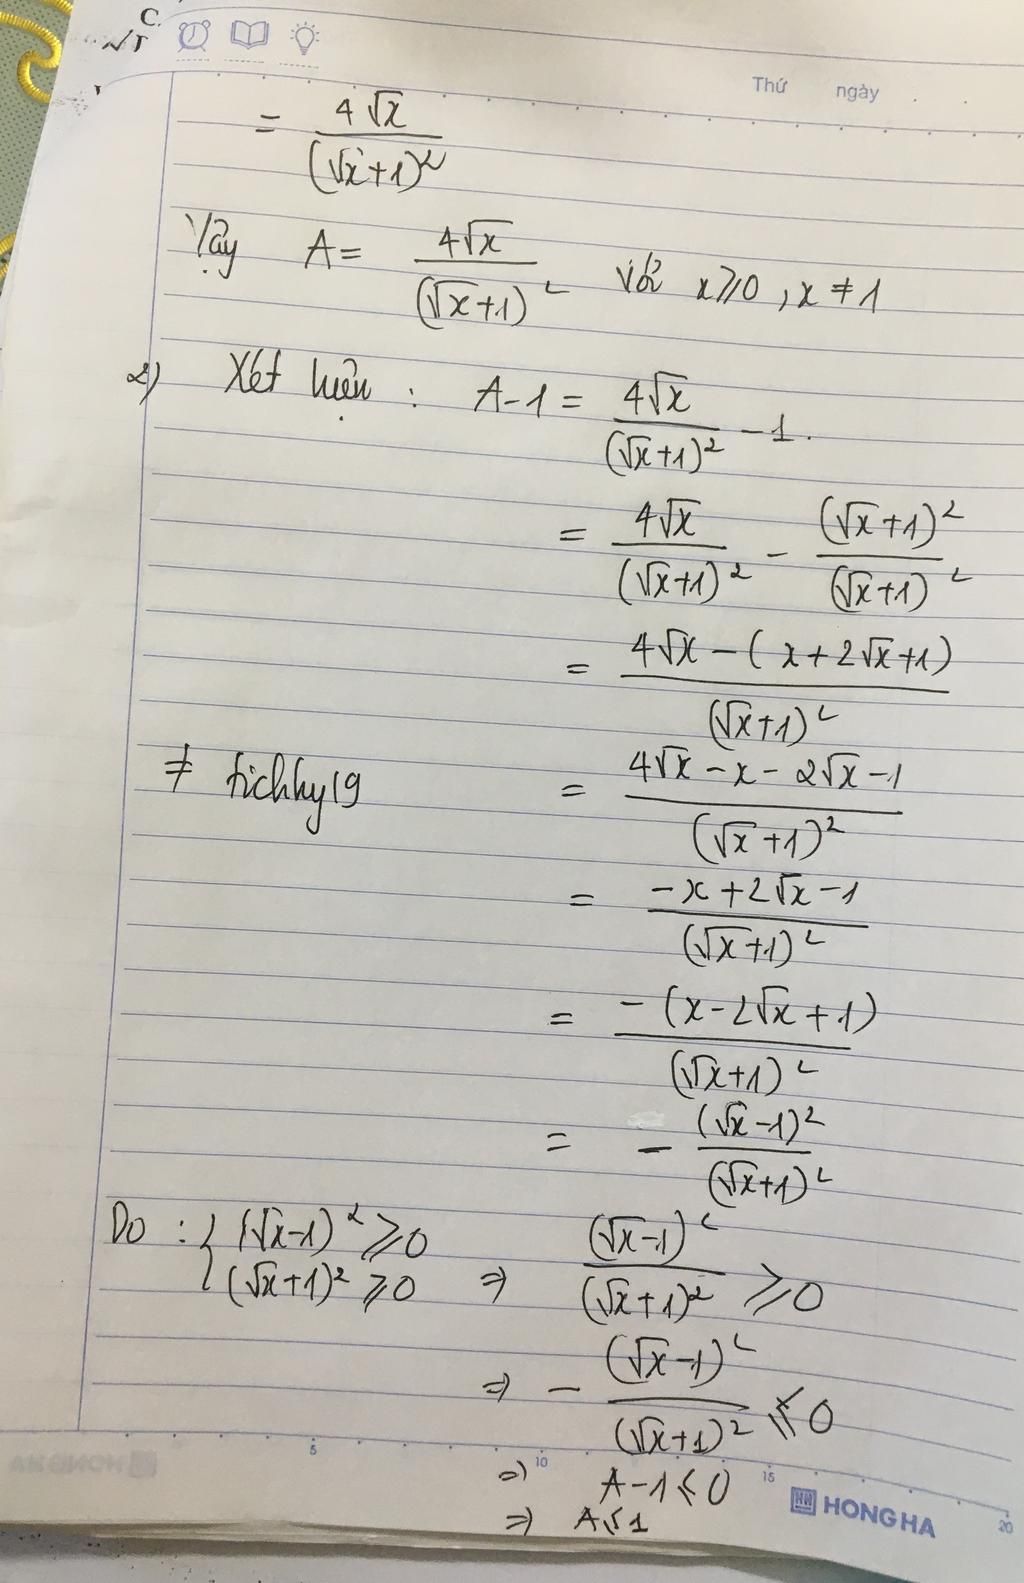 Thứ ngày
= 4√x / (√x+1)²
Vậy A = 4√x / (√x+1)² với x ⩾ 0, x ≠ 1
2) Xét hiệu : A-1 = 4√x / (√x+1)² - 1.
= 4√x / (√x+1)² - (√x+1)² / (√x+1)²
= 4√x - (x+2√x+1) / (√x+1)²
≠ tichhy19 = 4√x - x - 2√x - 1 / (√x+1)²
= -x+2√x-1 / (√x+1)²
= -(x-2√x+1) / (√x+1)²
= - (√x-1)² / (√x+1)²
Do : { (√x-1)² ⩾ 0
(√x+1)² ⩾ 0 ⇒ (√x-1)² / (√x+1)² ⩾ 0
⇒ - (√x-1)² / (√x+1)² ⩽ 0
⇒ A-1 ⩽ 0
⇒ A ⩽ 1
5 10 15 20
HONG HA